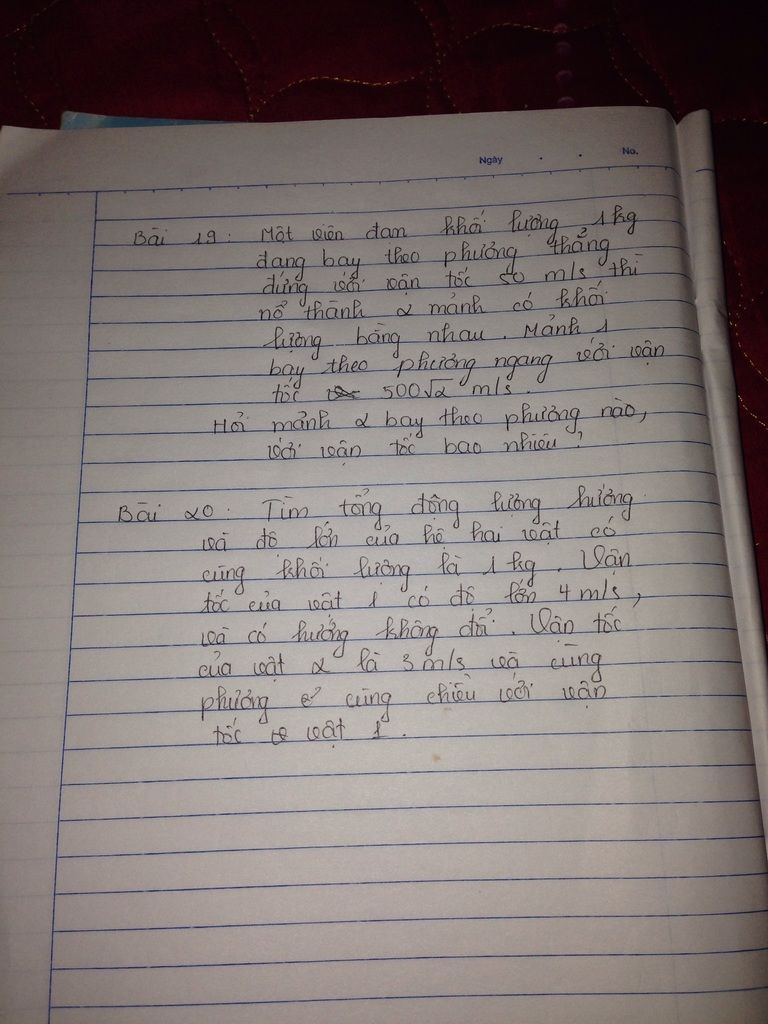 Ngày . . No.
Bài 19: Một viên đan khối lượng 1kg
đang bay theo phương thẳng
đứng với vận tốc 50 m/s thì
nổ thành 2 mảnh có khối
lượng bằng nhau. Mảnh 1
bay theo phương ngang với vận
tốc 500√2 m/s.
Hỏi mảnh 2 bay theo phương nào,
với vận tốc bao nhiêu?
Bài 20: Tìm tổng động lượng hướng
và độ lớn của hệ hai vật có
cùng khối lượng là 1 kg. Vận
tốc của vật 1 có độ lớn 4 m/s,
và có hướng không đổi. Vận tốc
của vật 2 là 3 m/s và cùng
phương cùng chiều với vận
tốc vật 1.